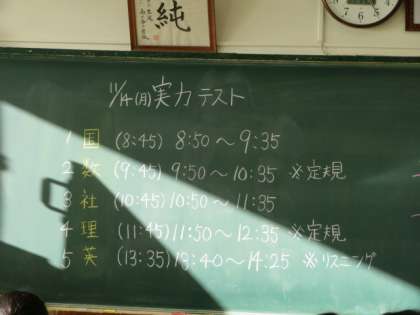 純
11/14(月)実力テスト
1 国 (8:45) 8:50〜9:35
2 数 (9:45) 9:50〜10:35 ※定規
3 社 (10:45) 10:50〜11:35
4 理 (11:45) 11:50〜12:35 ※定規
5 英 (13:35) 13:40〜14:25 ※リスニング